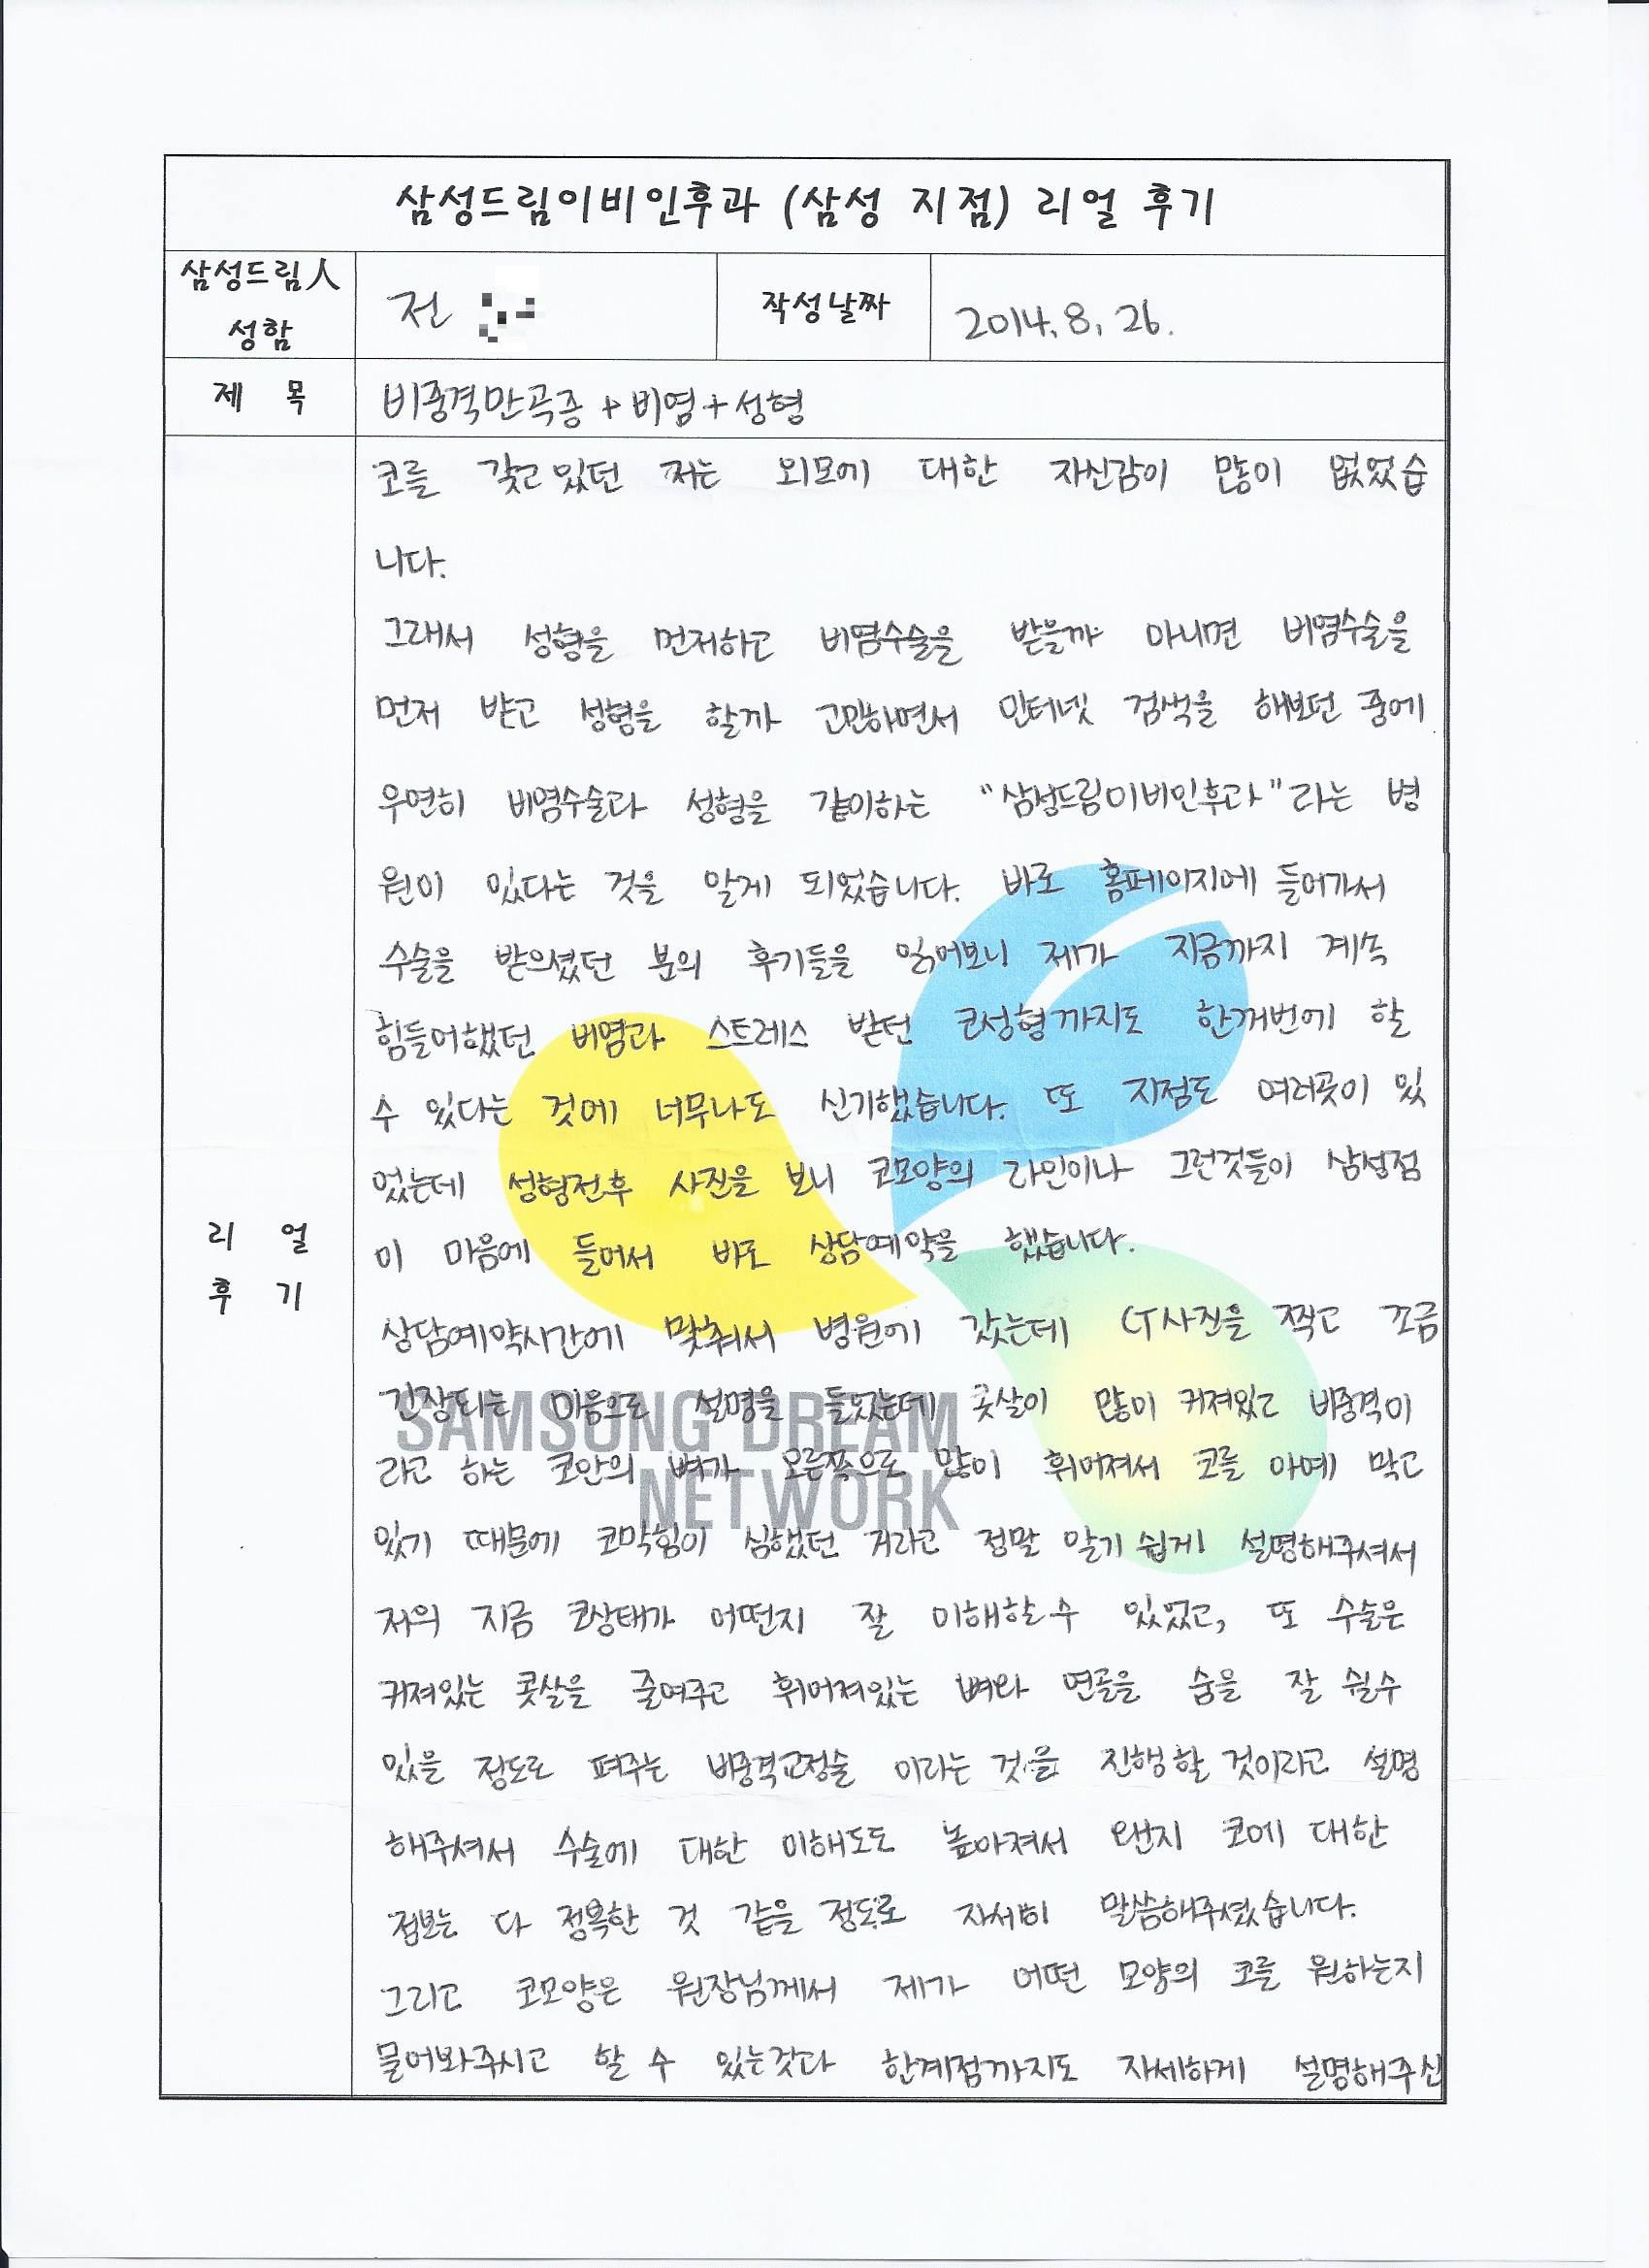 삼성드림이비인후과 (삼성 지점) 리얼 후기
삼성드림人
성함
전
작성날짜
2014. 8. 26.
제 목
비중격만곡증 + 비염 + 성형
코를 갖고 있던 저는 외모에 대한 자신감이 많이 없었습
니다.
그래서 성형을 먼저하고 비염수술을 받을까 아니면 비염수술을
먼저 받고 성형을 할까 고민하면서 인터넷 검색을 해보던 중에
우연히 비염수술과 성형을 같이하는 "삼성드림이비인후과"라는 병
원이 있다는 것을 알게 되었습니다. 바로 홈페이지에 들어가서
수술을 받으셨던 분의 후기들을 읽어보니 제가 지금까지 계속
힘들어했던 비염과 스트레스 받던 코성형까지도 한꺼번에 할
수 있다는 것에 너무나도 신기했습니다. 또 지점도 여러곳이 있
었는데 성형전후 사진을 보니 코모양의 라인이나 그런것들이 삼성점
이 마음에 들어서 바로 상담예약을 했습니다.
상담예약시간에 맞춰서 병원에 갔는데 CT사진을 찍고 조금
긴장되는 마음으로 설명을 들었는데 콧살이 많이 커져있고 비중격이
라고 하는 코안의 뼈가 오른쪽으로 많이 휘어져서 코를 아예 막고
있기 때문에 코막힘이 심했던 거라고 정말 알기 쉽게! 설명해주셔서
저의 지금 코상태가 어떤지 잘 이해할수 있었고, 또 수술은
커져있는 콧살을 줄여주고 휘어져있는 뼈와 연골을 숨을 잘 쉴수
있을 정도로 펴주는 비중격교정술 이라는 것을 진행할 것이라고 설명
해주셔서 수술에 대한 이해도도 높아져서 왠지 코에 대한
정보는 다 정복한 것 같을 정도로 자세히 말씀해주셨습니다.
그리고 코모양은 원장님께서 제가 어떤 모양의 코를 원하는지
물어봐주시고 할 수 있는것과 한계점까지도 자세하게 설명해주신
리 얼
후 기
SAMSUNG DREAM
NETWORK